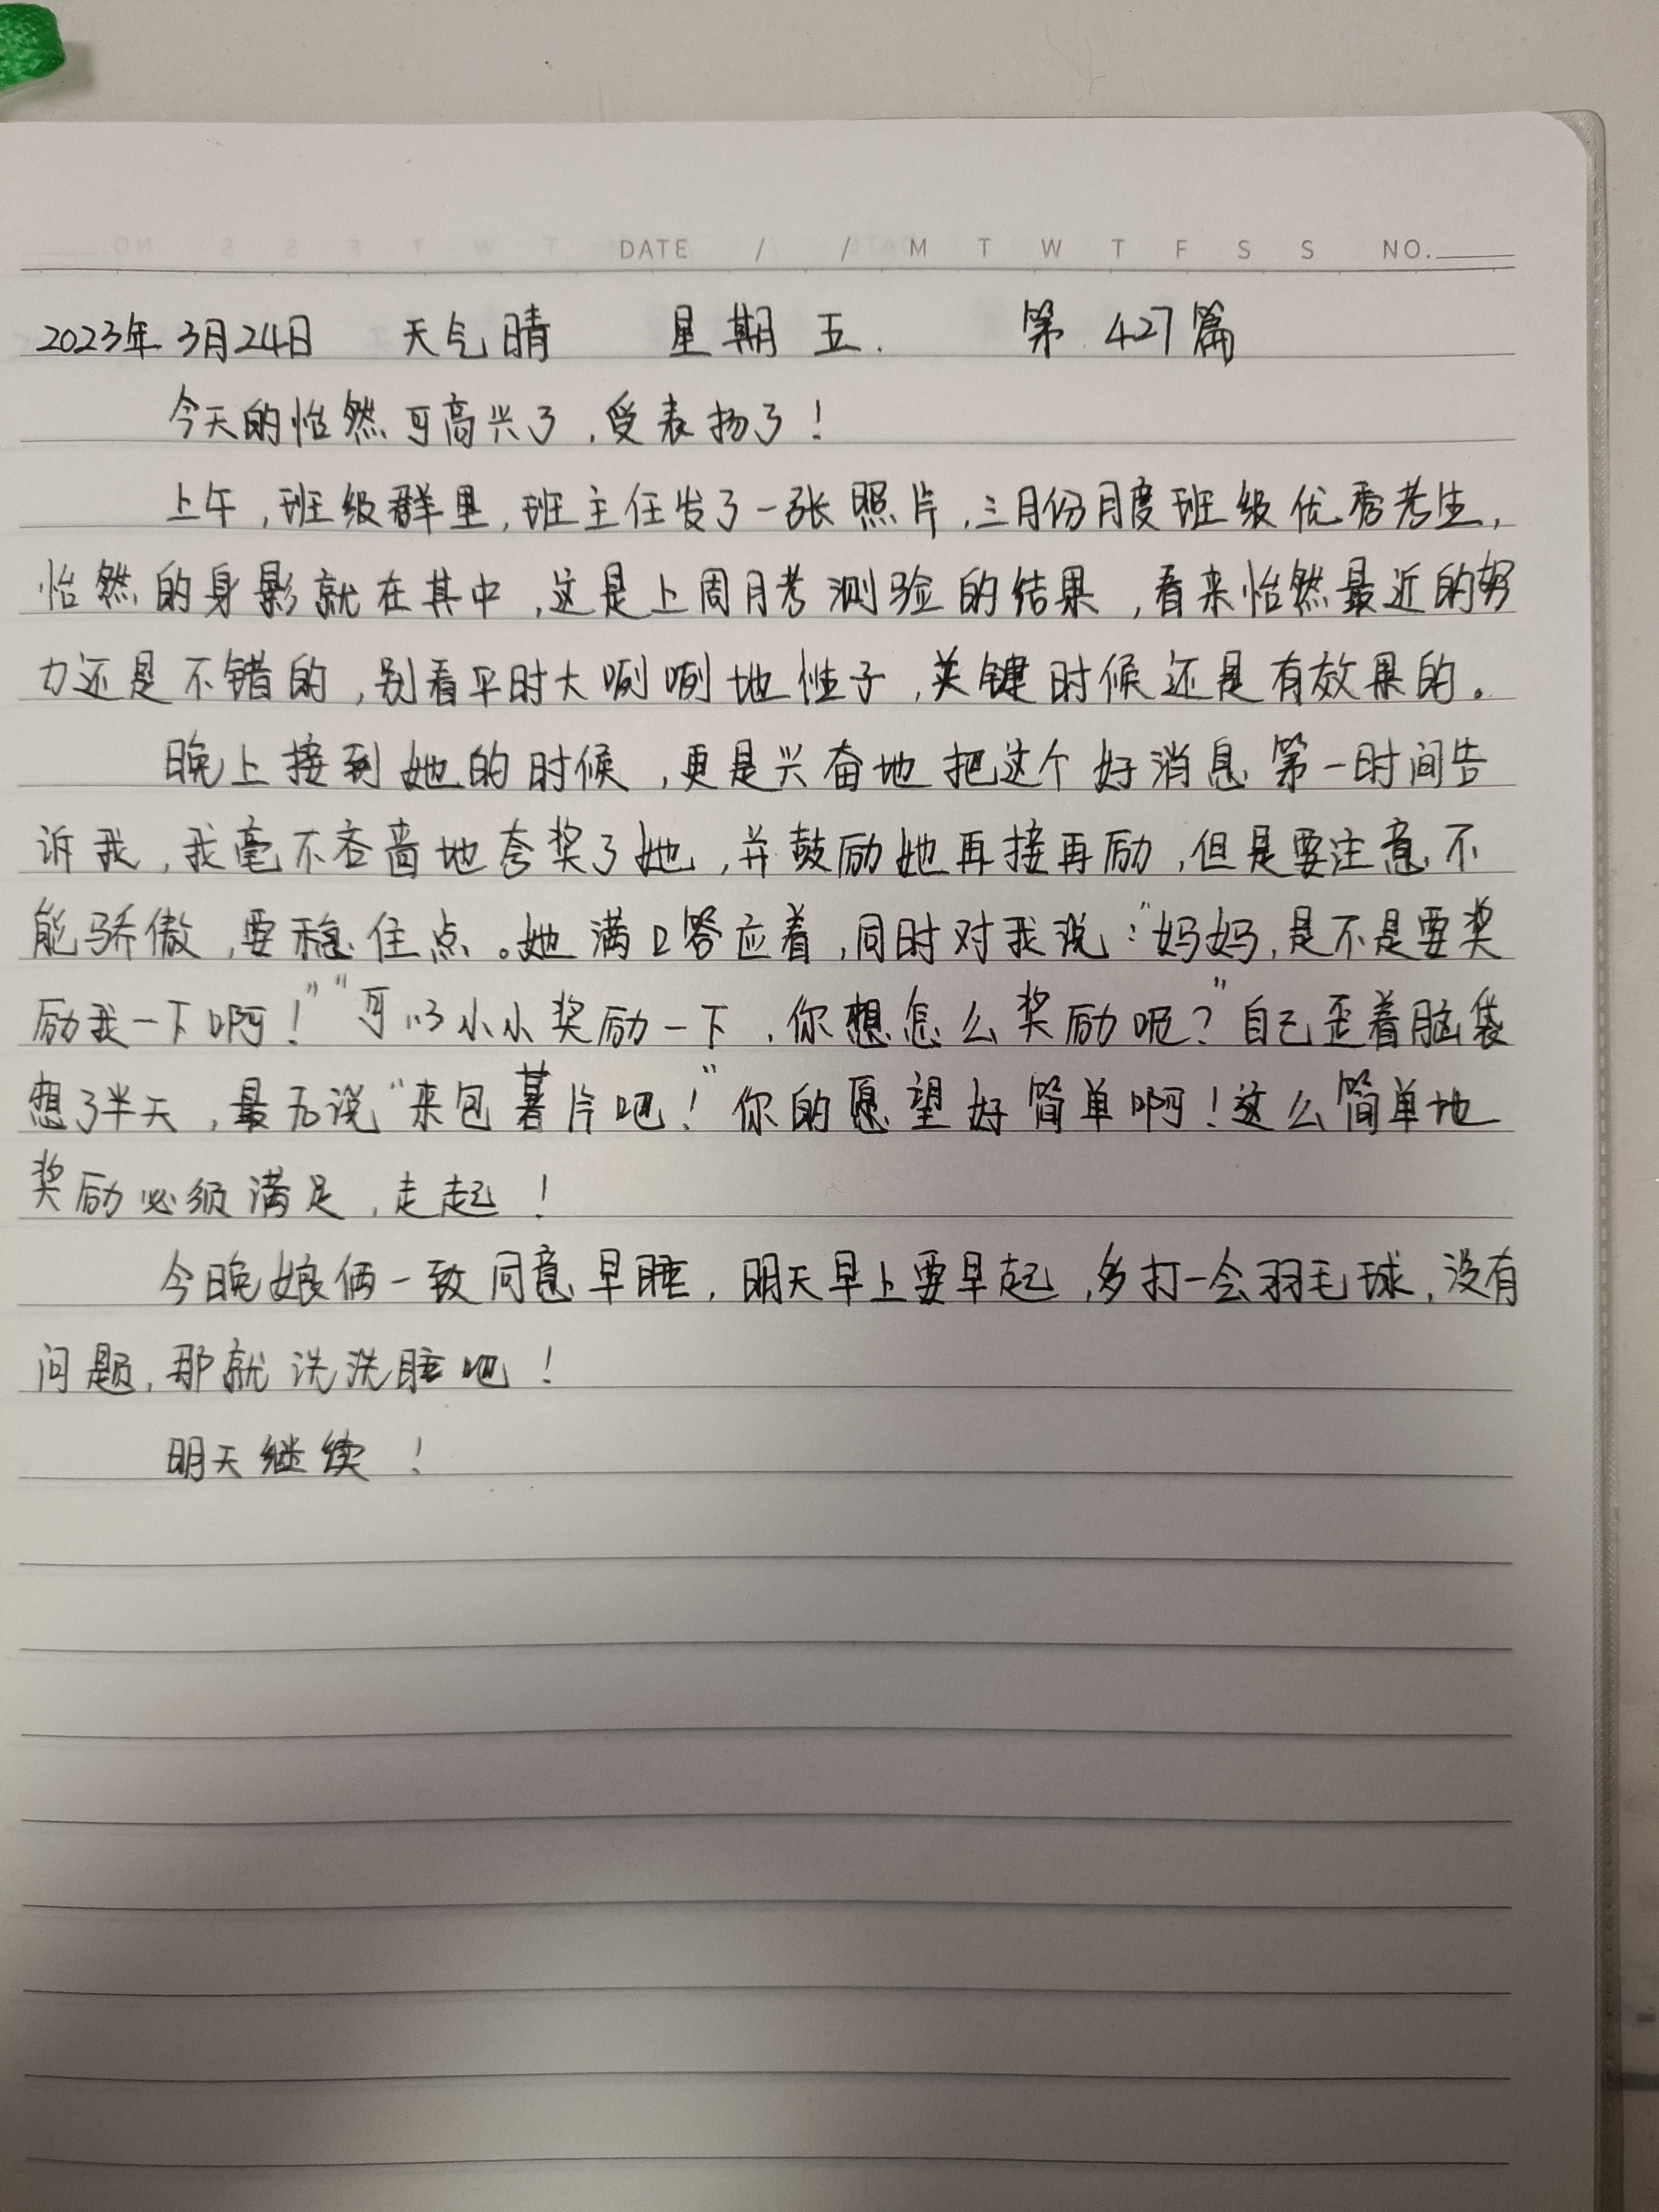 DATE / / M T W T F S S NO.
2023年3月24日 天气晴 星期五. 第427篇
今天的怡然可高兴了,受表扬了!
上午,班级群里,班主任发了一张照片,三月份月度班级优秀考生,
怡然的身影就在其中,这是上周月考测验的结果,看来怡然最近的努
力还是不错的,别看平时大咧咧地性子,关键时候还是有效果的。
晚上接到她的时候,更是兴奋地把这个好消息第一时间告
诉我,我毫不吝啬地夸奖了她,并鼓励她再接再励,但是要注意不
能骄傲,要稳住点。她满口答应着,同时对我说:“妈妈,是不是要奖
励我一下啊!”“可以小小奖励一下,你想怎么奖励呢?”自己歪着脑袋
想了半天,最后说“来包薯片吧!”你的愿望好简单啊!这么简单地
奖励必须满足,走起!
今晚娘俩一致同意早睡,明天早上要早起,多打一会羽毛球,没有
问题,那就洗洗睡吧!
明天继续!